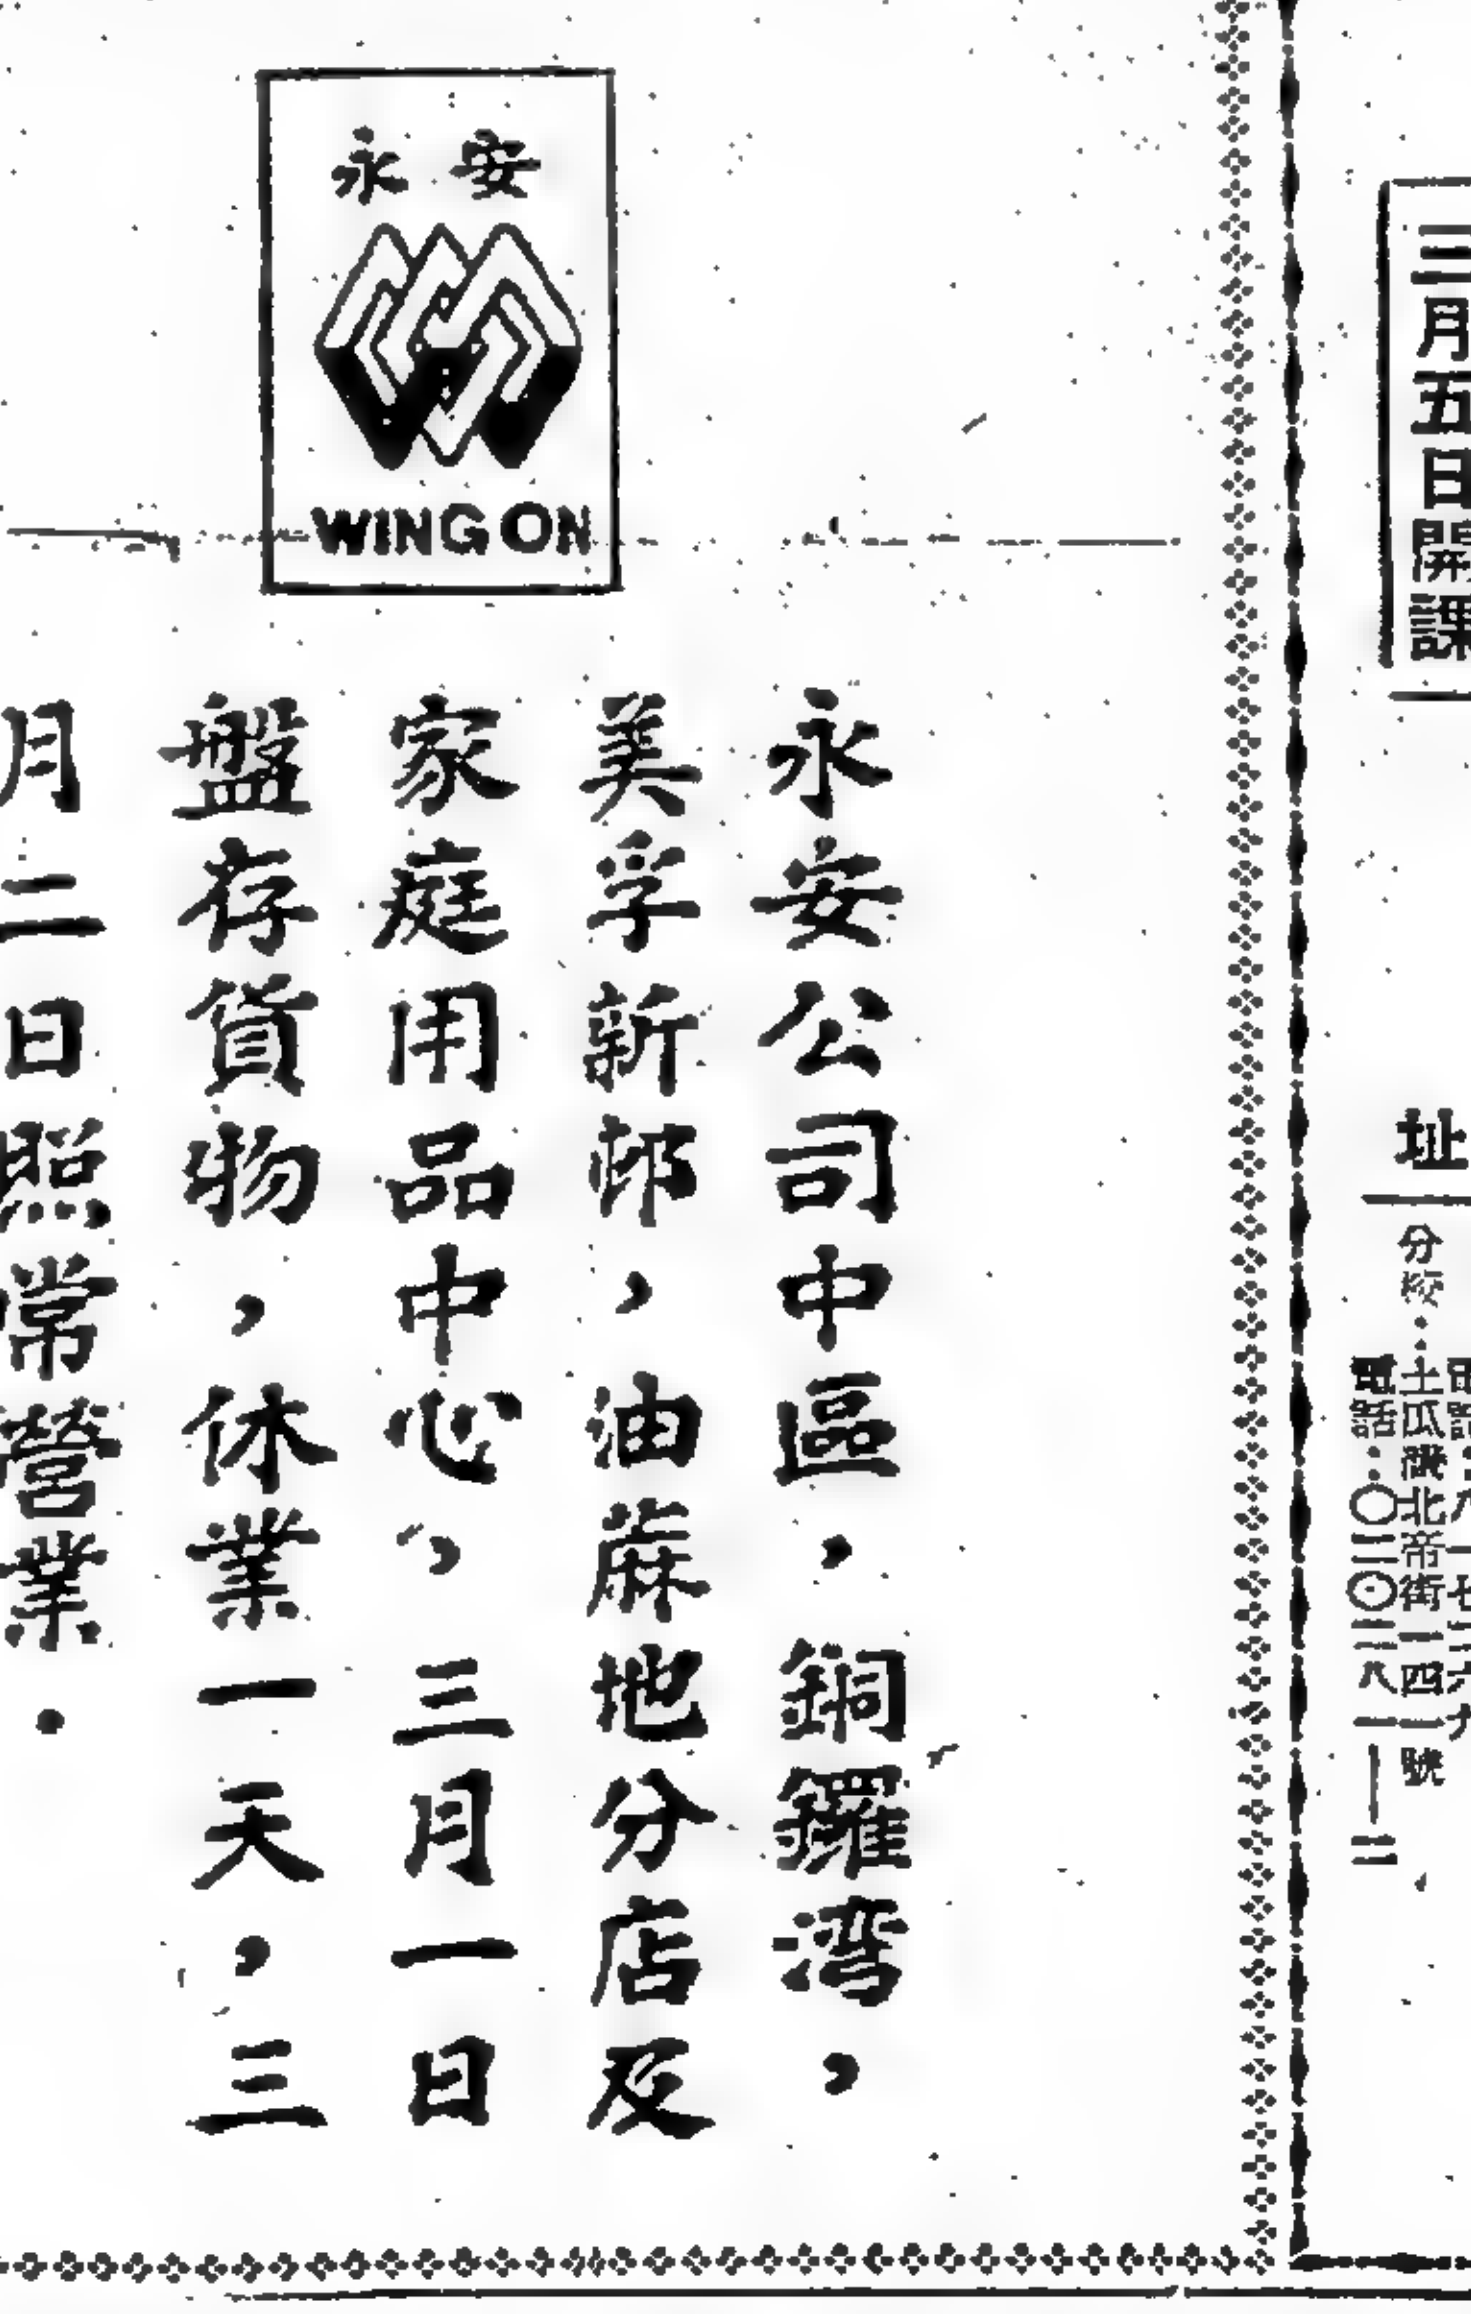 永安
WING ON
永安公司中區，銅鑼湾，
美孚新邨，油蔴地分店及
家庭用品中心，三月一日
盤存貨物，休業一天，三
月二日照常營業．
三月五日開課
址
分校：土瓜灣北帝街一四一號
電話：〇三〇三八一——二